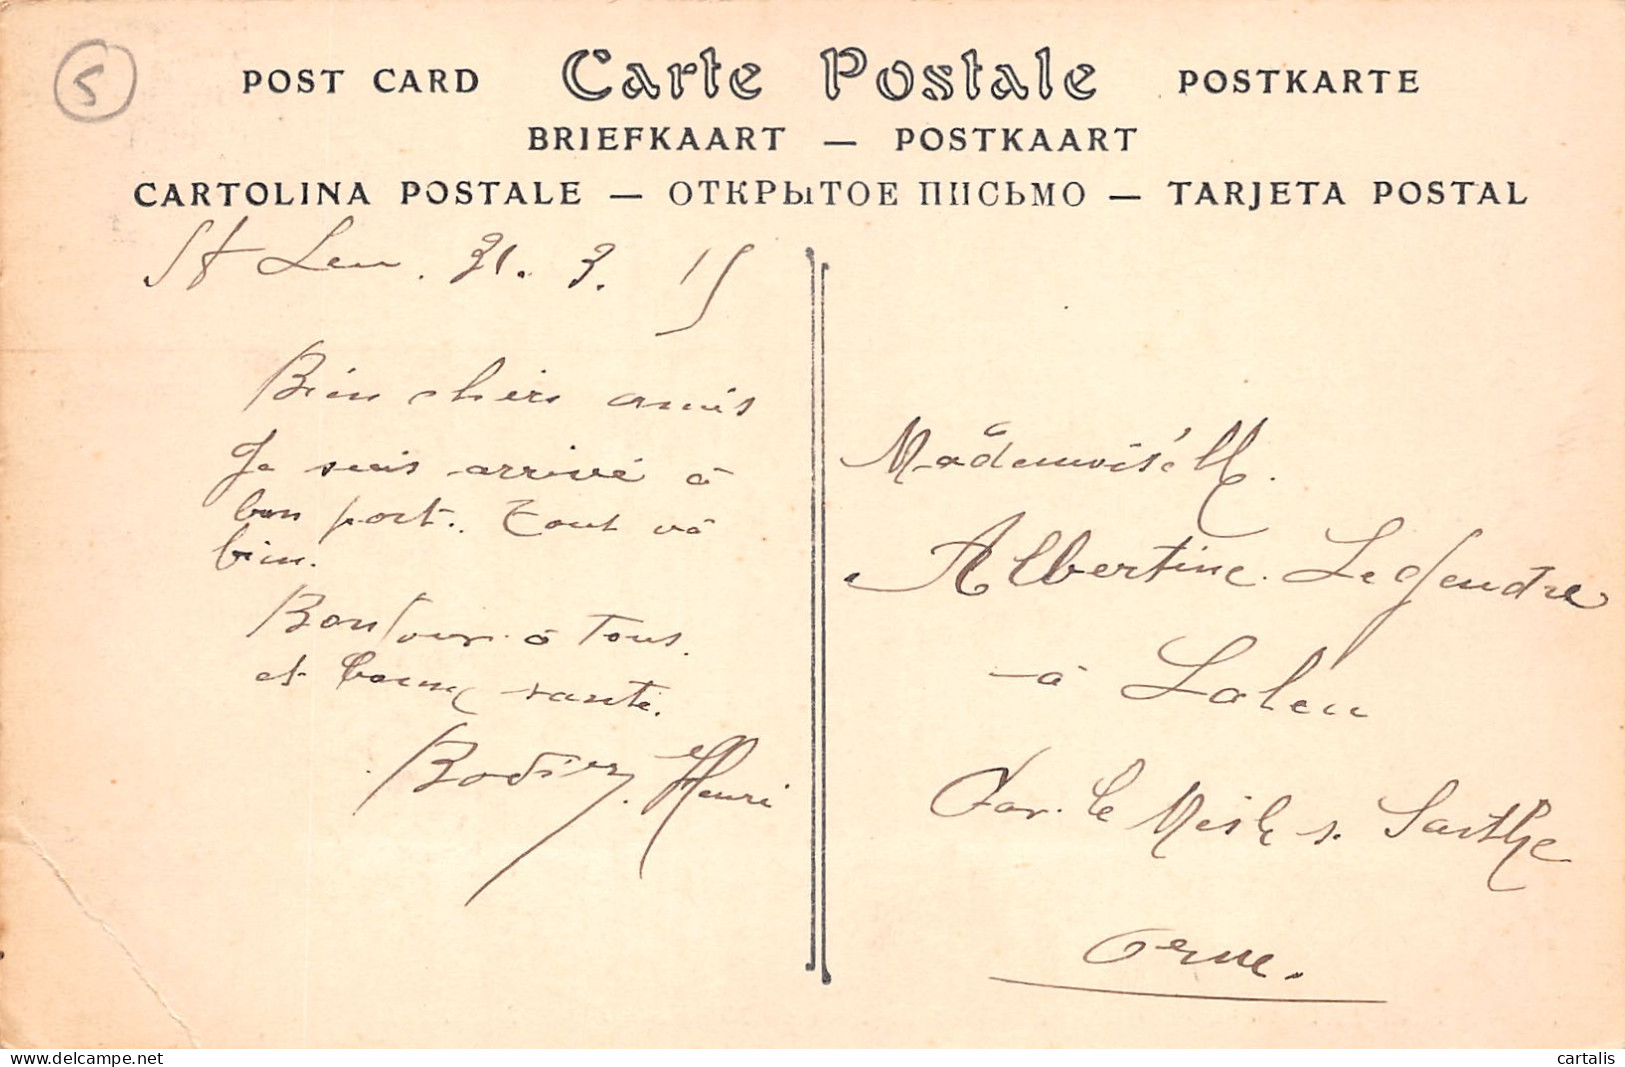 5
POST CARD Carte Postale POSTKARTE
BRIEFKAART — POSTKAART
CARTOLINA POSTALE — ОТКРЫТОЕ ПИСЬМО — TARJETA POSTAL
St Leu. 31. 3. 15
Bien chers amis
Je suis arrivé à
bon port. Tout va
bien.
Bonjour à Tous.
et bonne santé.
Bodier. Henri
Mademoiselle.
Albertine. Legendre
à Laleu
Par. le Mesle s. Sarthe
Orne.
cartalis